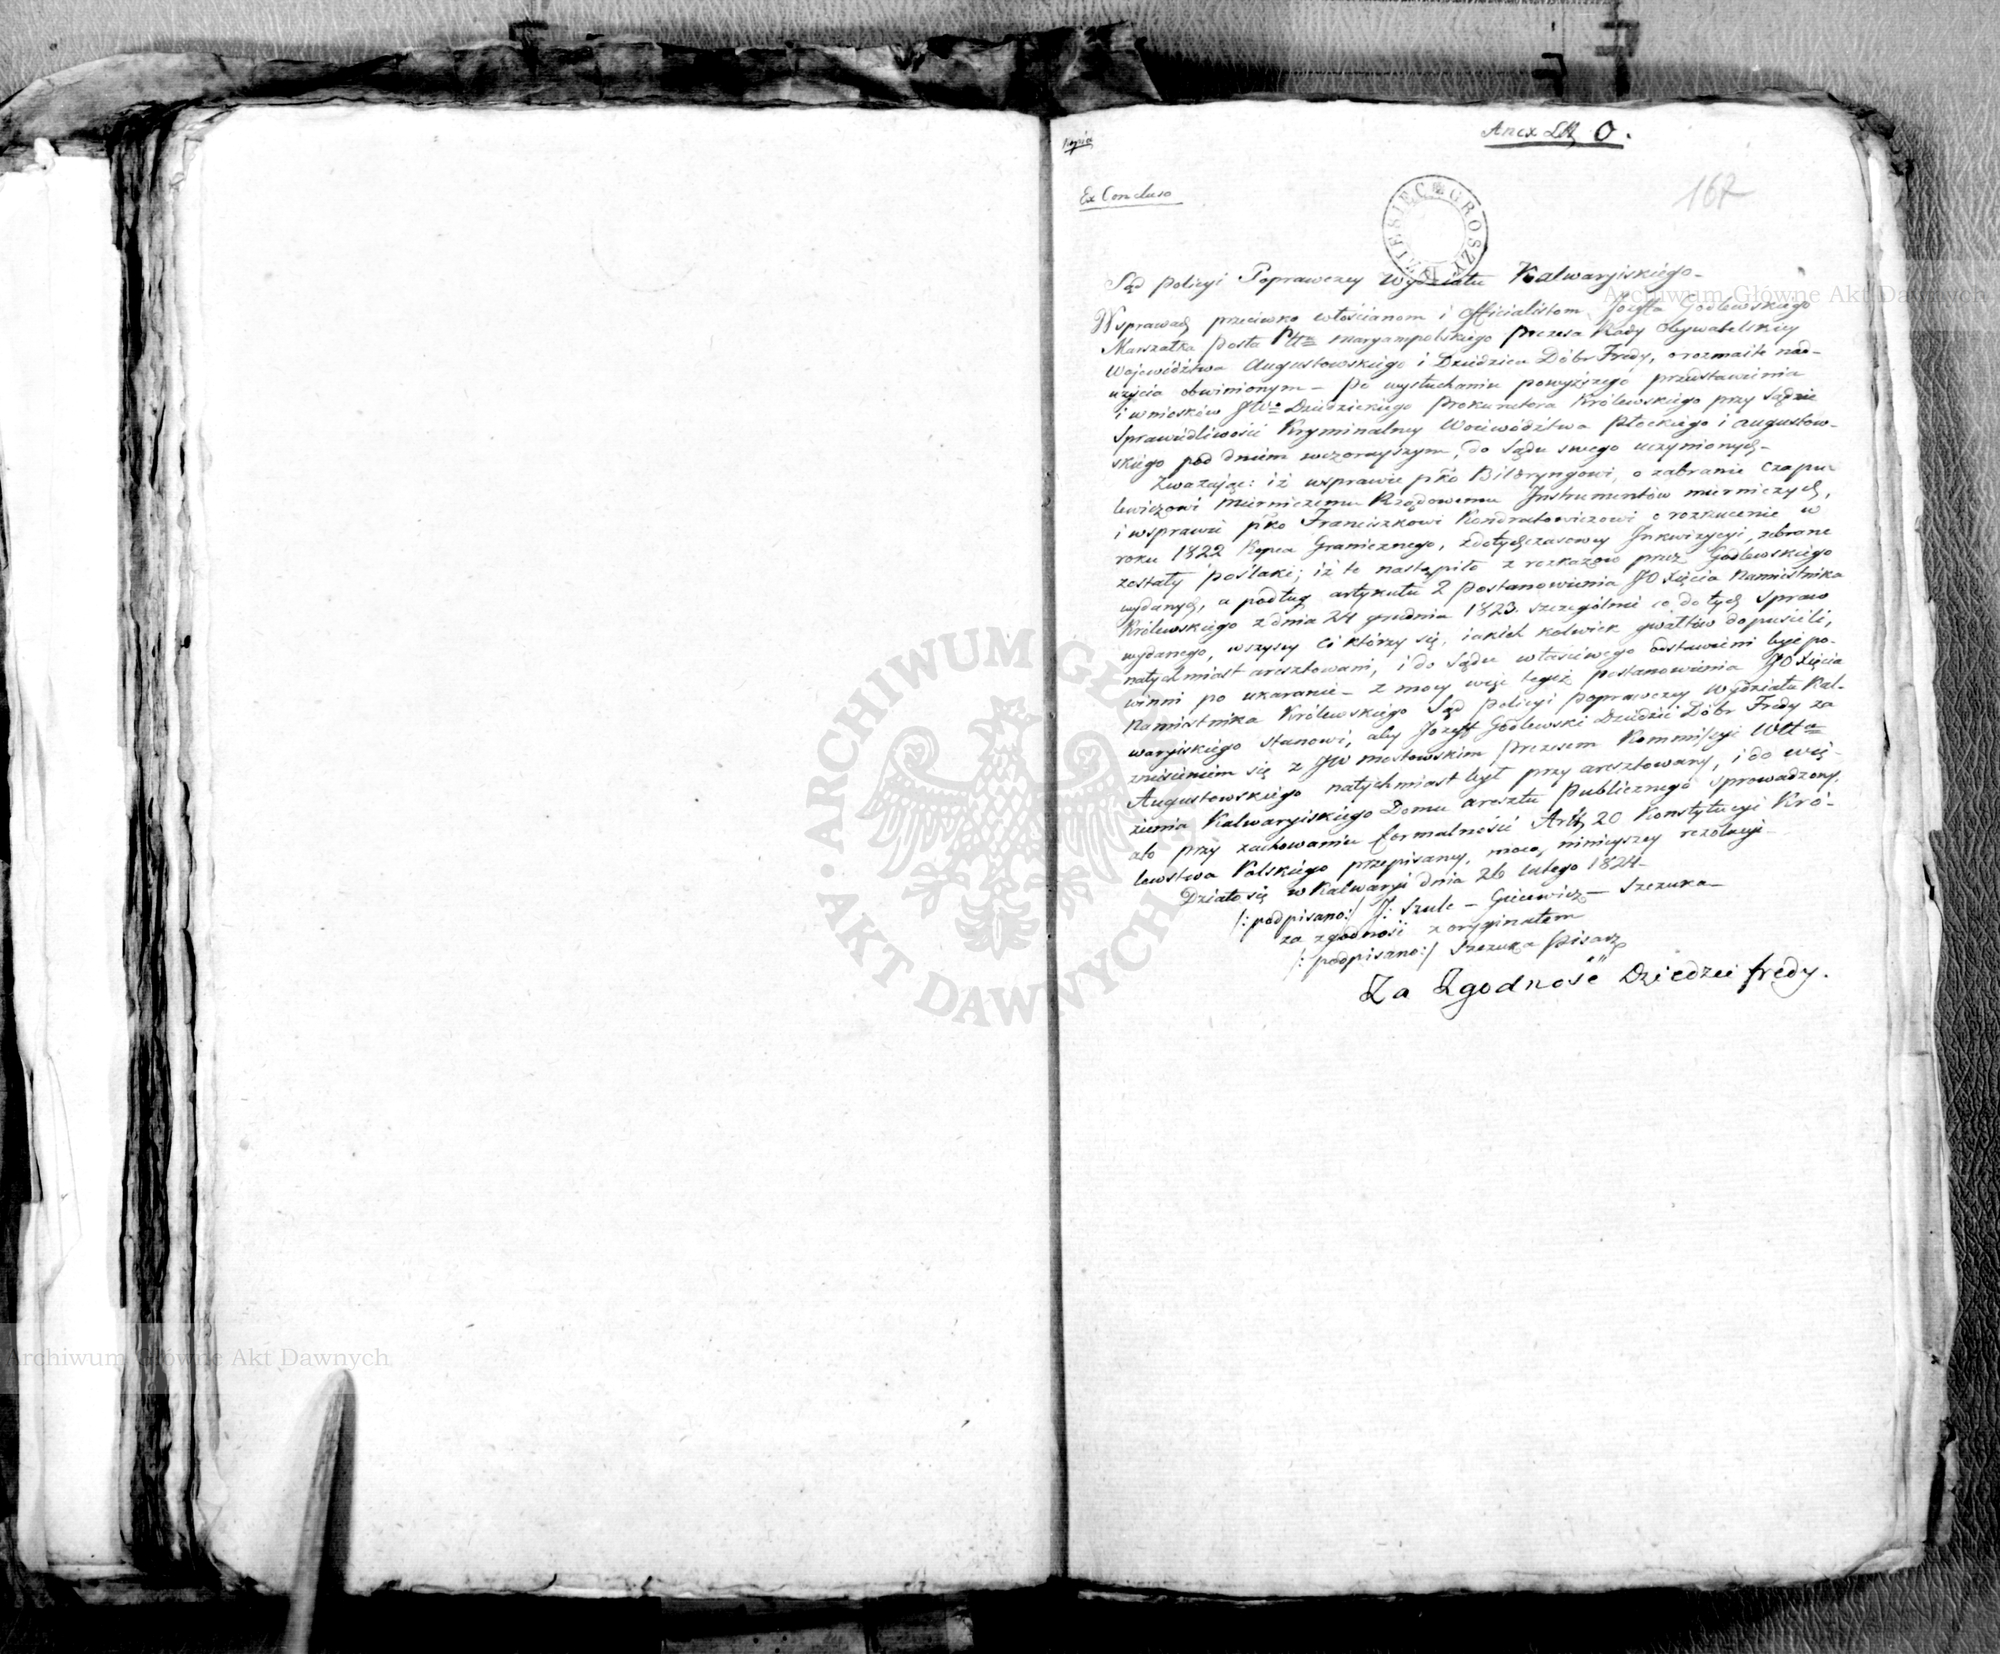 Kopia
Anex Lit. O.
Ex Concluso
167
DZIESIĘC GROSZY
Sąd Policyi Poprawczey Wydziału Kalwaryiskiego.
W sprawach przeciwko włościanom i officialistom Jozefa Godlewskiego
Marszałka Posła Pttu Maryampolskiego Prezesa Rady Obywatelskiey
Wojewódźtwa Augustowskiego i Dziedzica Dóbr Fredy, o rozmaite nad-
użycia obwinionym – Po wysłuchaniu powyższego przedstawienia
i wniosków JWo Dziedzickiego Prokuratora Królewskiego przy Sądzie
Sprawiedliwości Kryminalney Wojewódźtwa Płockiego i Augustow-
skiego pod dniem wczorayszym, do Sądu swego uczynionych –
Zważając: iż w sprawie pko Bilderyngowi, o zabranie Czapu-
lewiczowi Mierniczemu Rządowemu Jnstrumentów mierniczych,
i w sprawie pko Franciszkowi Kondratowiczowi o rozrzucenie w
roku 1822 Kopca Granicznego, z dotychczasowey Jnkwizycyi, zebrane
zostały poślaki; iż to nastąpiło z rozkazów przez Godlewskiego
wydanych, a podług artykułu 2 Postanowienia JO Xięcia Namiestnika
Królewskiego z dnia 24 grudnia 1823. szczególnie co do tych Spraw
wydanego, wszyscy Ci którzy się iakich kolwiek gwałtów dopuścili,
natychmiast aresztowani, i do Sądu właściwego odstawieni być po-
winni po ukaranie – z mocy więc tegoż postanowienia JO Xięcia
Namiestnika Królewskiego Sąd Policyi Poprawczey Wydziału Kal-
waryiskiego stanowi, aby Jozeff Godlewski Dziedzic Dóbr Fredy za
zniesieniem się z JW Mostowskim Prezesem Kommissyi Wttwa
Augustowskiego natychmiast był przyaresztowany, i do wię-
zienia Kalwaryiskiego Domu aresztu Publicznego sprowadzony,
a to przy zachowaniu formalności Artł 20 Konstytucyi Kró-
lewstwa Polskiego przepisaney, mocą ninieyszey rezolucyi –
Działo się w Kalwaryi dnia 26 lutego 1824 –
/: podpisano:/ J: Szulc – Giecewicz – Szczuka –
za zgodność z oryginałem
/: podpisano:/ Szczuka Pisarz
Za Zgodność Dziedzic Fredy.
Archiwum Główne Akt Dawnych
Archiwum Główne Akt Dawnych